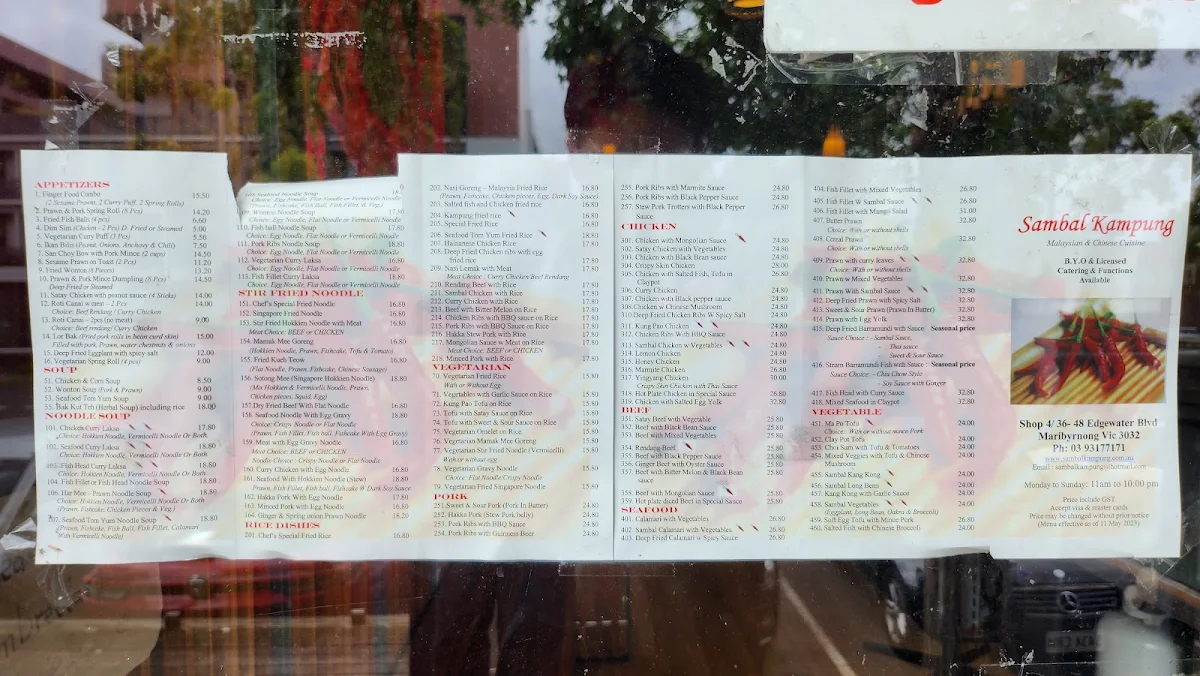 APPETIZERS
1. Finger Food Combo 15.50
(2 Sesame Prawns, 2 Curry Puff, 2 Spring Rolls)
2. Prawn & Pork Spring Roll (8 Pcs) 14.20
3. Fried Fish Balls (4 pcs) 6.60
4. Dim Sim (Chicken - 2 Pcs) D. Fried or Steamed 5.00
5. Vegetarian Curry Puff (3 Pcs) 5.50
6. Ikan Bilis (Peanut, Onions, Anchovy & Chili) 7.50
7. San Choy Bow with Pork Mince (2 cups) 14.50
8. Sesame Prawn on Toast (2 Pcs) 11.20
9. Fried Wonton (6 Pieces) 13.20
10. Prawn & Pork Mince Dumpling (8 Pcs) 14.50
Deep Fried or Steamed
11. Satay Chicken with peanut sauce (4 Sticks) 14.00
12. Roti Canai w meat - 2 Pcs 14.00
Choice: Beef Rendang / Curry Chicken
13. Roti Canai - 2pcs (no meat) 9.00
Choice: Beef rendang/ curry Chicken
14. Lor Bak (Fried pork rolls in bean curd skin) 15.00
Filled with pork, Prawn, water chestnuts & onions
15. Deep Fried Eggplant with spicy salt 12.00
16. Vegetarian Spring Roll (4 pcs) 9.00
SOUP
51. Chicken & Corn Soup 8.50
52. Wonton Soup (Pork & Prawn) 9.00
53. Seafood Tom Yum Soup 9.00
55. Bak Kut Teh (Herbal Soup) including rice 18.00
NOODLE SOUP
101. Chicken Curry Laksa 17.80
Choice: Hokkien Noodle, Vermicelli Noodle Or Both
102. Seafood Curry Laksa 18.80
Choice: Hokkien Noodle, Vermicelli Noodle Or Both
103. Fish Head Curry Laksa
Choice: Hokkien Noodle, Vermicelli Noodle Or Both
104. Fish Fillet or Fish Head Noodle Soup 18.80
106. Har Mee - Prawn Noodle Soup 18.80
Choice: Hokkien Noodle, Vermicelli Noodle Or Both
(Prawn, Fishcake, Chicken Pieces & Veg.)
107. Seafood Tom Yum Noodle Soup 18.80
(Prawn, Fishcake, Fish Ball, Fish Fillet, Calamari
With Vermicelli Noodle)
Seafood Noodle Soup
Choice: Egg Noodle, Flat Noodle or Vermicelli Noodle
(Prawn, Fishcake, Fish Ball, Fish Fillet & Veg.)
109. Wonton Noodle Soup 17.80
Choice: Egg Noodle, Flat Noodle or Vermicelli Noodle
110. Fish ball Noodle Soup
Choice: Egg Noodle, Flat Noodle or Vermicelli Noodle
111. Pork Ribs Noodle Soup
Choice: Egg Noodle, Flat Noodle or Vermicelli Noodle
112. Vegetarian Curry Laksa 16.80
Choice: Egg Noodle, Flat Noodle or Vermicelli Noodle
113. Fish Fillet Curry Laksa
Choice: Egg Noodle, Flat Noodle or Vermicelli Noodle
STIR FRIED NOODLE
151. Chef's Special Fried Noodle 16.80
152. Singapore Fried Noodle 16.80
153. Stir Fried Hokkien Noodle with Meat 16.80
Meat Choice: BEEF or CHICKEN
154. Mamak Mee Goreng 16.80
(Hokkien Noodle, Prawn, Fishcake, Tofu & Tomato)
155. Fried Kueh Teow 16.80
(Flat Noodle, Prawn, Fishcake, Chinese Sausage)
156. Sotong Mee (Singapore Hokkien Noodle) 18.80
(Mix Hokkien & Vermicelli Noodle, Prawn,
Chicken pieces, Squid, Egg)
157. Dry Fried Beef With Flat Noodle 16.80
158. Seafood Noodle With Egg Gravy 18.80
Choice: Crispy Noodle or Flat Noodle
(Prawn, Fish Fillet, Fish ball, Fishcake With Egg Gravy)
159. Meat with Egg Gravy Noodle 16.80
Meat Choice: BEEF or CHICKEN
Noodle Choice: Crispy Noodle or Flat Noodle
160. Curry Chicken with Egg Noodle 16.80
161. Seafood With Hokkien Noodle (Stew) 18.80
Prawn, Fish Fillet, Fish ball, Fishcake W Dark Soy Sauce
162. Hakka Pork With Egg Noodle 17.80
163. Minced Pork with Egg Noodle 16.80
164. Ginger & Spring onion Prawn Noodle 18.20
RICE DISHES
201. Chef's Special Fried Rice 16.80
202. Nasi Goreng - Malaysia Fried Rice 16.80
(Prawn, Fishcake, Chicken pieces, Egg, Dark Soy Sauce)
203. Salted fish and Chicken fried rice 16.80
204. Kampung fried rice 16.80
205. Special Fried Rice 16.80
206. Seafood Tom Yum Fried Rice 16.80
207. Hainanese Chicken Rice 16.80
208. Deep Fried Chicken ribs with egg
fried rice 16.80
209. Nasi Lemak with Meat 16.80
Meat Choice: Curry Chicken/Beef Rendang
210. Rendang Beef with Rice 16.80
211. Sambal Chicken with Rice 16.80
212. Curry Chicken with Rice 16.80
213. Beef with Bitter Melon on Rice 16.80
214. Chicken Ribs with BBQ sauce on Rice 16.80
215. Pork Ribs with BBQ sauce on Rice 16.80
216. Hakka Stew Pork with Rice 16.80
217. Mongolian Sauce w Meat on Rice 16.80
Meat Choice: BEEF or CHICKEN
218. Minced Pork with Rice 16.80
VEGETARIAN
70. Vegetarian Fried Rice 15.80
With or Without Egg
71. Vegetables with Garlic Sauce on Rice 15.80
72. Kung Pao Tofu on Rice 15.80
73. Tofu with Satay Sauce on Rice 15.80
74. Tofu with Sweet & Sour Sauce on Rice 15.80
75. Vegetarian Omelet on Rice 15.80
76. Vegetarian Mamak Mee Goreng 15.80
77. Vegetarian Stir Fried Noodle (Vermicelli) 15.80
With or without Egg
78. Vegetarian Gravy Noodle 15.80
Choice: Flat Noodle/Crispy Noodle
79. Vegetarian Fried Singapore Noodle 15.80
PORK
251. Sweet & Sour Pork (Pork In Batter) 24.80
252. Hakka Pork (Stew Pork belly) 24.80
253. Pork Ribs with BBQ Sauce 24.80
254. Pork Ribs with Guinness Beer 24.80
255. Pork Ribs with Marmite Sauce 24.80
256. Pork Ribs with Black Pepper Sauce 24.80
257. Stew Pork Trotters with Black Pepper
Sauce 24.80
CHICKEN
301. Chicken with Mongolian Sauce 24.80
302. Satay Chicken with Vegetables 24.80
303. Chicken with Black Bean sauce 24.80
304. Crispy Skin Chicken 28.00
305. Chicken with Salted Fish, Tofu in
Claypot 26.80
306. Curry Chicken 24.80
307. Chicken with Black pepper sauce 24.80
308. Chicken w Chinese Mushroom 24.80
310. Deep Fried Chicken Ribs W Spicy Salt 24.80
311. Kung Pao Chicken 24.80
312. Chicken Ribs With BBQ Sauce 24.80
313. Sambal Chicken w Vegetables 24.80
314. Lemon Chicken 24.80
315. Honey Chicken 24.80
316. Marmite Chicken 26.80
317. Yingyang Chicken 30.00
Crispy Skin Chicken with Thai Sauce
318. Hot Plate Chicken in Special Sauce 26.80
319. Chicken with Salted Egg Yolk 32.80
BEEF
351. Satay Beef with Vegetable 25.80
352. Beef with Black Bean Sauce 25.80
353. Beef with Mixed Vegetables 25.80
354. Rendang Beef 25.80
355. Beef with Black Pepper Sauce 25.80
356. Ginger Beef with Oyster Sauce 25.80
357. Beef with Bitter Melon & Black Bean
sauce 25.80
358. Beef with Mongolian Sauce 25.80
359. Hot plate diced Beef in Special Sauce 25.80
SEAFOOD
401. Calamari with Vegetables 26.80
402. Sambal Calamari with Vegetables 26.80
403. Deep Fried Calamari w Spicy Sauce 26.80
404. Fish Fillet with Mixed Vegetables 26.80
405. Fish Fillet W Sambal Sauce 26.80
406. Fish Fillet with Mango Salad 31.00
407. Butter Prawn 32.80
Choice: With or without shells
408. Cereal Prawn 32.80
Choice: With or without shells
409. Prawn with curry leaves 32.80
Choice: With or without shells
410. Prawn w Mixed Vegetables 32.80
411. Prawn With Sambal Sauce 32.80
412. Deep Fried Prawn with Spicy Salt 32.80
413. Sweet & Sour Prawn (Prawn In Batter) 32.80
414. Prawn with Egg Yolk 32.80
415. Deep Fried Barramundi with Sauce Seasonal price
Sauce Choice: - Sambal Sauce,
Thai sauce
Sweet & Sour Sauce
416. Steam Barramundi Fish with Sauce Seasonal price
Sauce Choice: - Chiu Chow Style
- Soy Sauce with Ginger
417. Fish Head with Curry Sauce 32.80
418. Mixed Seafood in Claypot 32.80
VEGETABLE
451. Ma Po Tofu 24.00
Choice: With or without mince Pork
452. Clay Pot Tofu 24.00
453. Choi Sum with Tofu & Tomatoes 24.00
454. Mixed Veggies with Tofu & Chinese
Mushroom 24.00
455. Sambal Kang Kong 24.00
456. Sambal Long Beans 24.00
457. Kang Kong with Garlic Sauce 24.00
458. Sambal Vegetables 24.00
(Eggplant, Long Bean, Okra & Broccoli)
459. Soft Egg Tofu with Mince Pork 26.80
460. Salted Fish with Chinese Broccoli 24.00
Sambal Kampung
Malaysian & Chinese Cuisine
B.Y.O & Licensed
Catering & Functions
Available
Shop 4/ 36- 48 Edgewater Blvd
Maribyrnong Vic 3032
Ph: 03 93177171
www.sambalkampung.com.au
Email : sambalkampung@hotmail.com
Monday to Sunday: 11am to 10:00 pm
Price include GST
Accept visa & master cards
Price may be changed without prior notice
(Menu effective as of 11 May 2023)